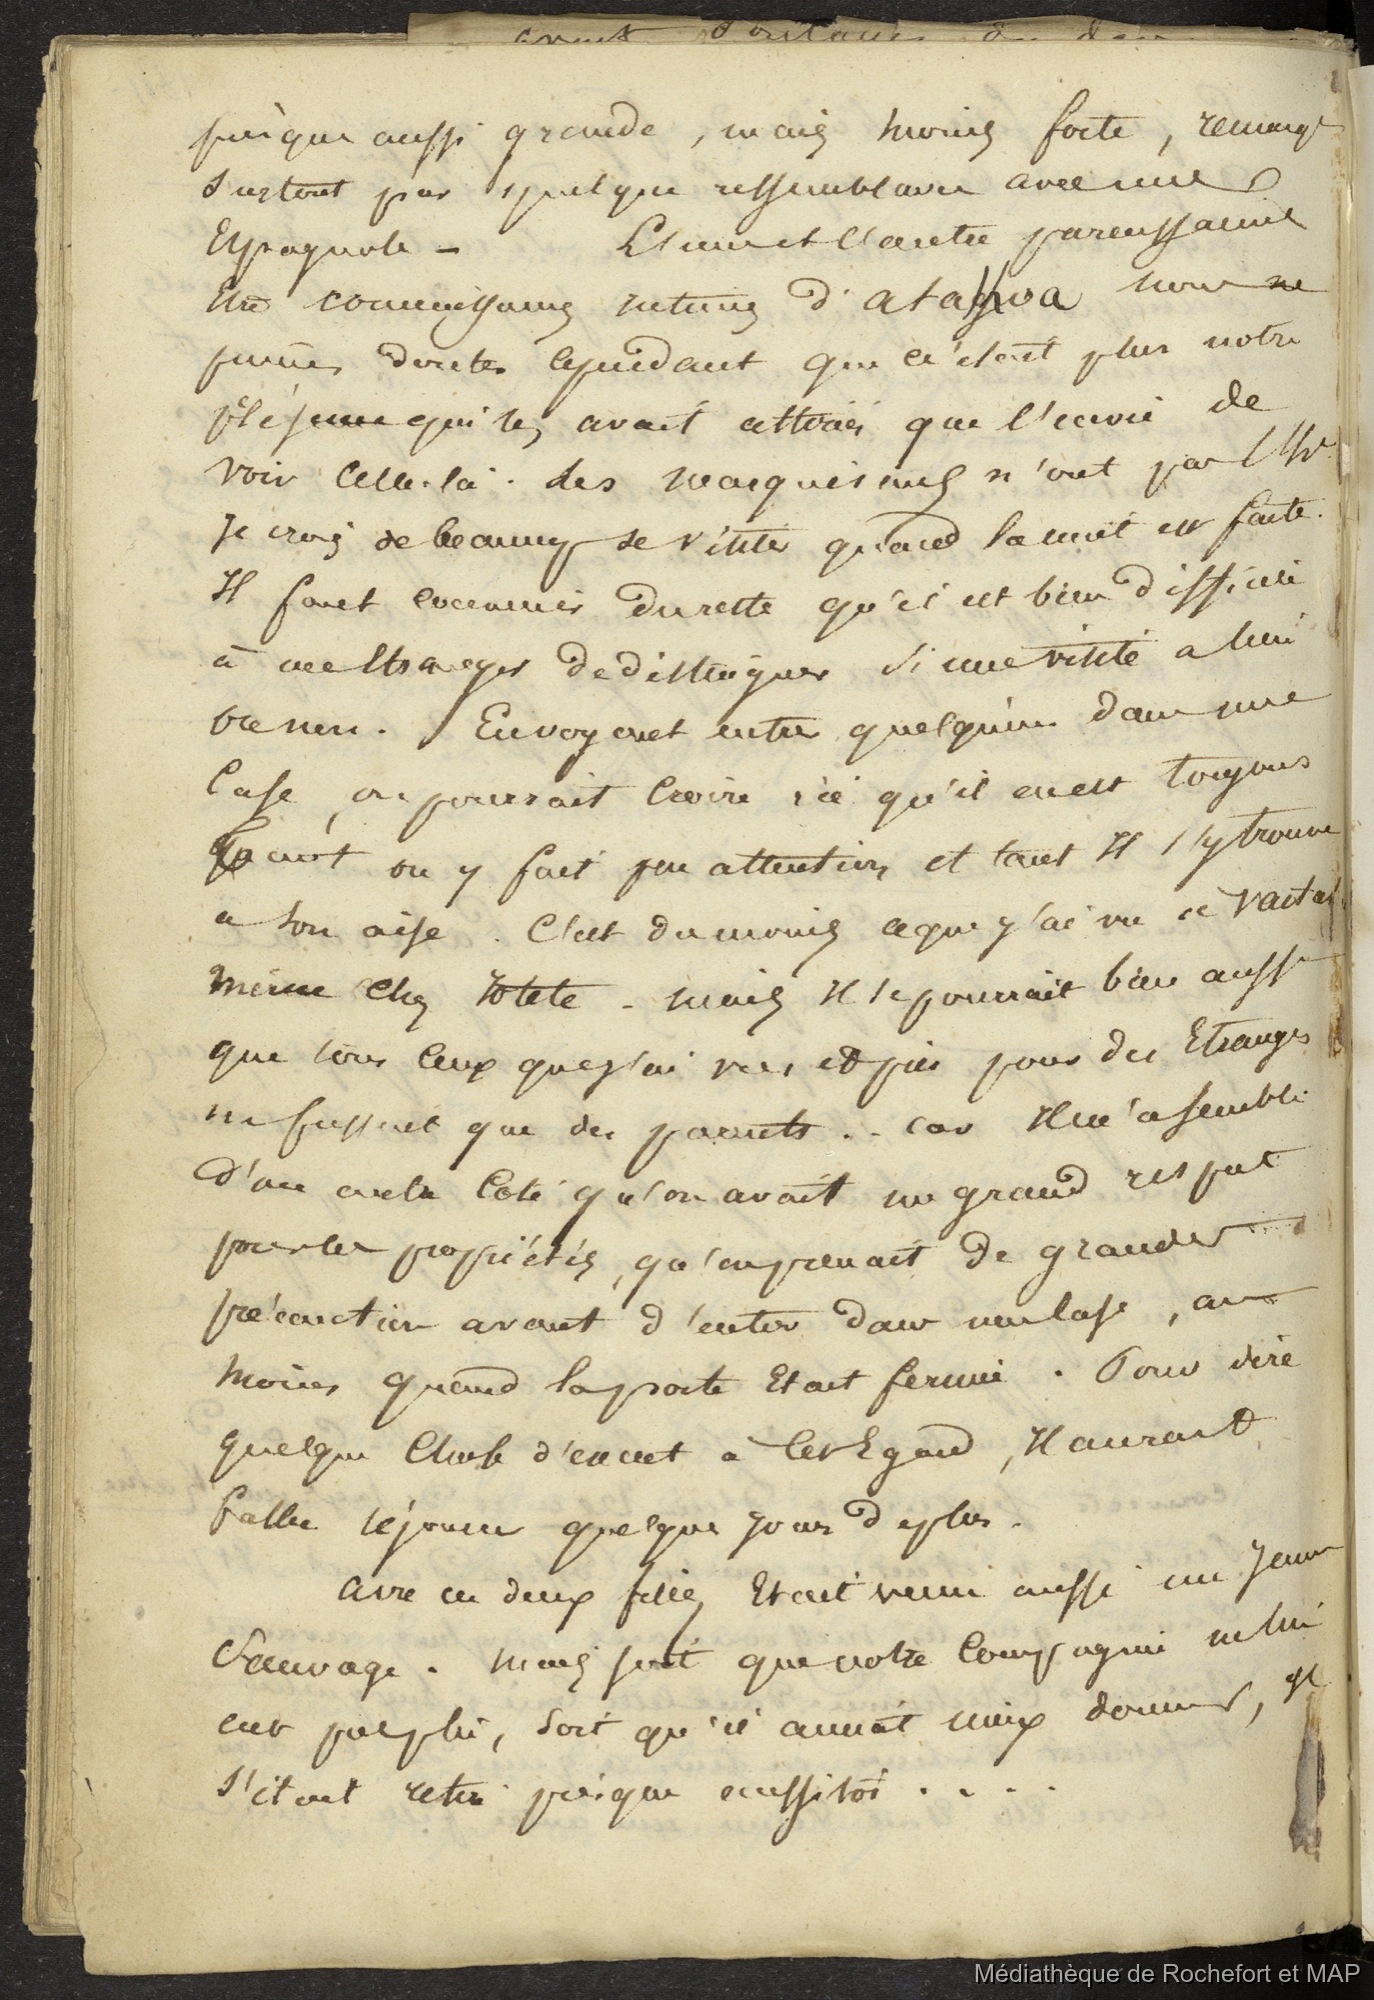 presque aussi grande, mais moins forte, remarq
surtout par quelque ressemblance avec une
Espagnole - L'une et l'autre paraissaient
être connaissances intimes d'atahoa nous ne
pumes douter cependant que c'étoit plus notre
qui les avait attirées que l'envie de
voir celle-là. Les marquisiens n'ont pas l'
Je crois de beaucoup se visiter quand la nuit est faite.
Il faut convenir du reste qu'il est bien difficile
à un étranger de distinguer si une visite a lieu
ou non. En voyant entrer quelqu'un dans une
Case, on pourrait croire ici qu'il en est toujours
tant on y fait peu attention et tant Il s'y trouve
a son aise. C'est du moins ce que j'ai vu à Vaita
même chez totete - mais Il se pourrait bien aussi
que tous ceux que j'ai vus et pris pour des Etrangers
ne fussent que des parents .. car Il m'a semblé
D'un autre Coté qu'on avait un grand respect
pour les propriétés, qu'on prenait de grandes
précaution avant d'entrer dans une case, au
moins quand la porte Etait fermée. Pour dire
quelque Chose d'exact à cet Egard, Il aurait
fallu séjourner quelques jours de plus.
avec ces deux filles Etait venu aussi un jeune
Sauvage. mais soit que notre Compagnie ne lui
eut pas plu, soit qu'il aimat mieux dormir, Il
s'était retiré presque aussitôt . . . .
Médiathèque de Rochefort et MAP